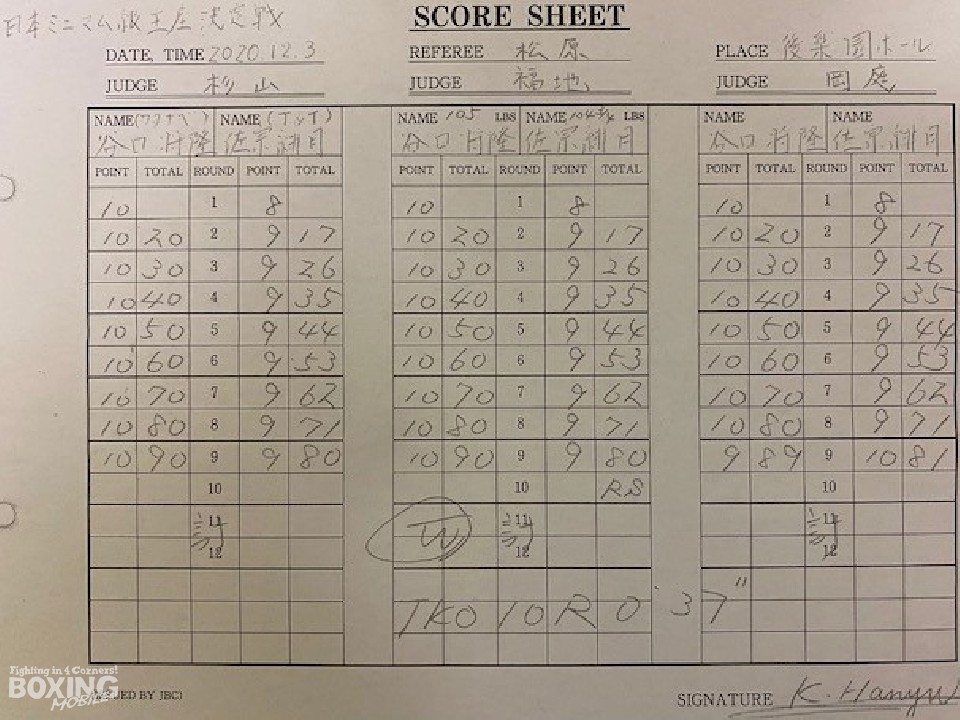 SCORE SHEET
日本ミニマム級王座決定戦
DATE, TIME 2020.12.3 REFEREE 松原 PLACE 後楽園ホール
JUDGE 杉山 JUDGE 福地 JUDGE 岡庭
NAME (ワタナベ) NAME NAME 105 LBS NAME 104 3/4 LBS NAME NAME
谷口将隆 佐宗緋月 谷口将隆 佐宗緋月 谷口将隆 佐宗緋月
POINT TOTAL ROUND POINT TOTAL POINT TOTAL ROUND POINT TOTAL POINT TOTAL ROUND POINT TOTAL
10 1 8 10 1 8 10 1 8
10 20 2 9 17 10 20 2 9 17 10 20 2 9 17
10 30 3 9 26 10 30 3 9 26 10 30 3 9 26
10 40 4 9 35 10 40 4 9 35 10 40 4 9 35
10 50 5 9 44 10 50 5 9 44 10 50 5 9 44
10 60 6 9 53 10 60 6 9 53 10 60 6 9 53
10 70 7 9 62 10 70 7 9 62 10 70 7 9 62
10 80 8 9 71 10 80 8 9 71 10 80 8 9 71
10 90 9 9 80 10 90 9 9 80 9 89 9 10 81
10 10 RS 10
11 W 11 11
計 計 計
12 12 12
TKO 10R 0'37"
Fighting in 4 Corners!
BOXING
MOBILE
ISSUED BY JBC SIGNATURE K. Hanyu